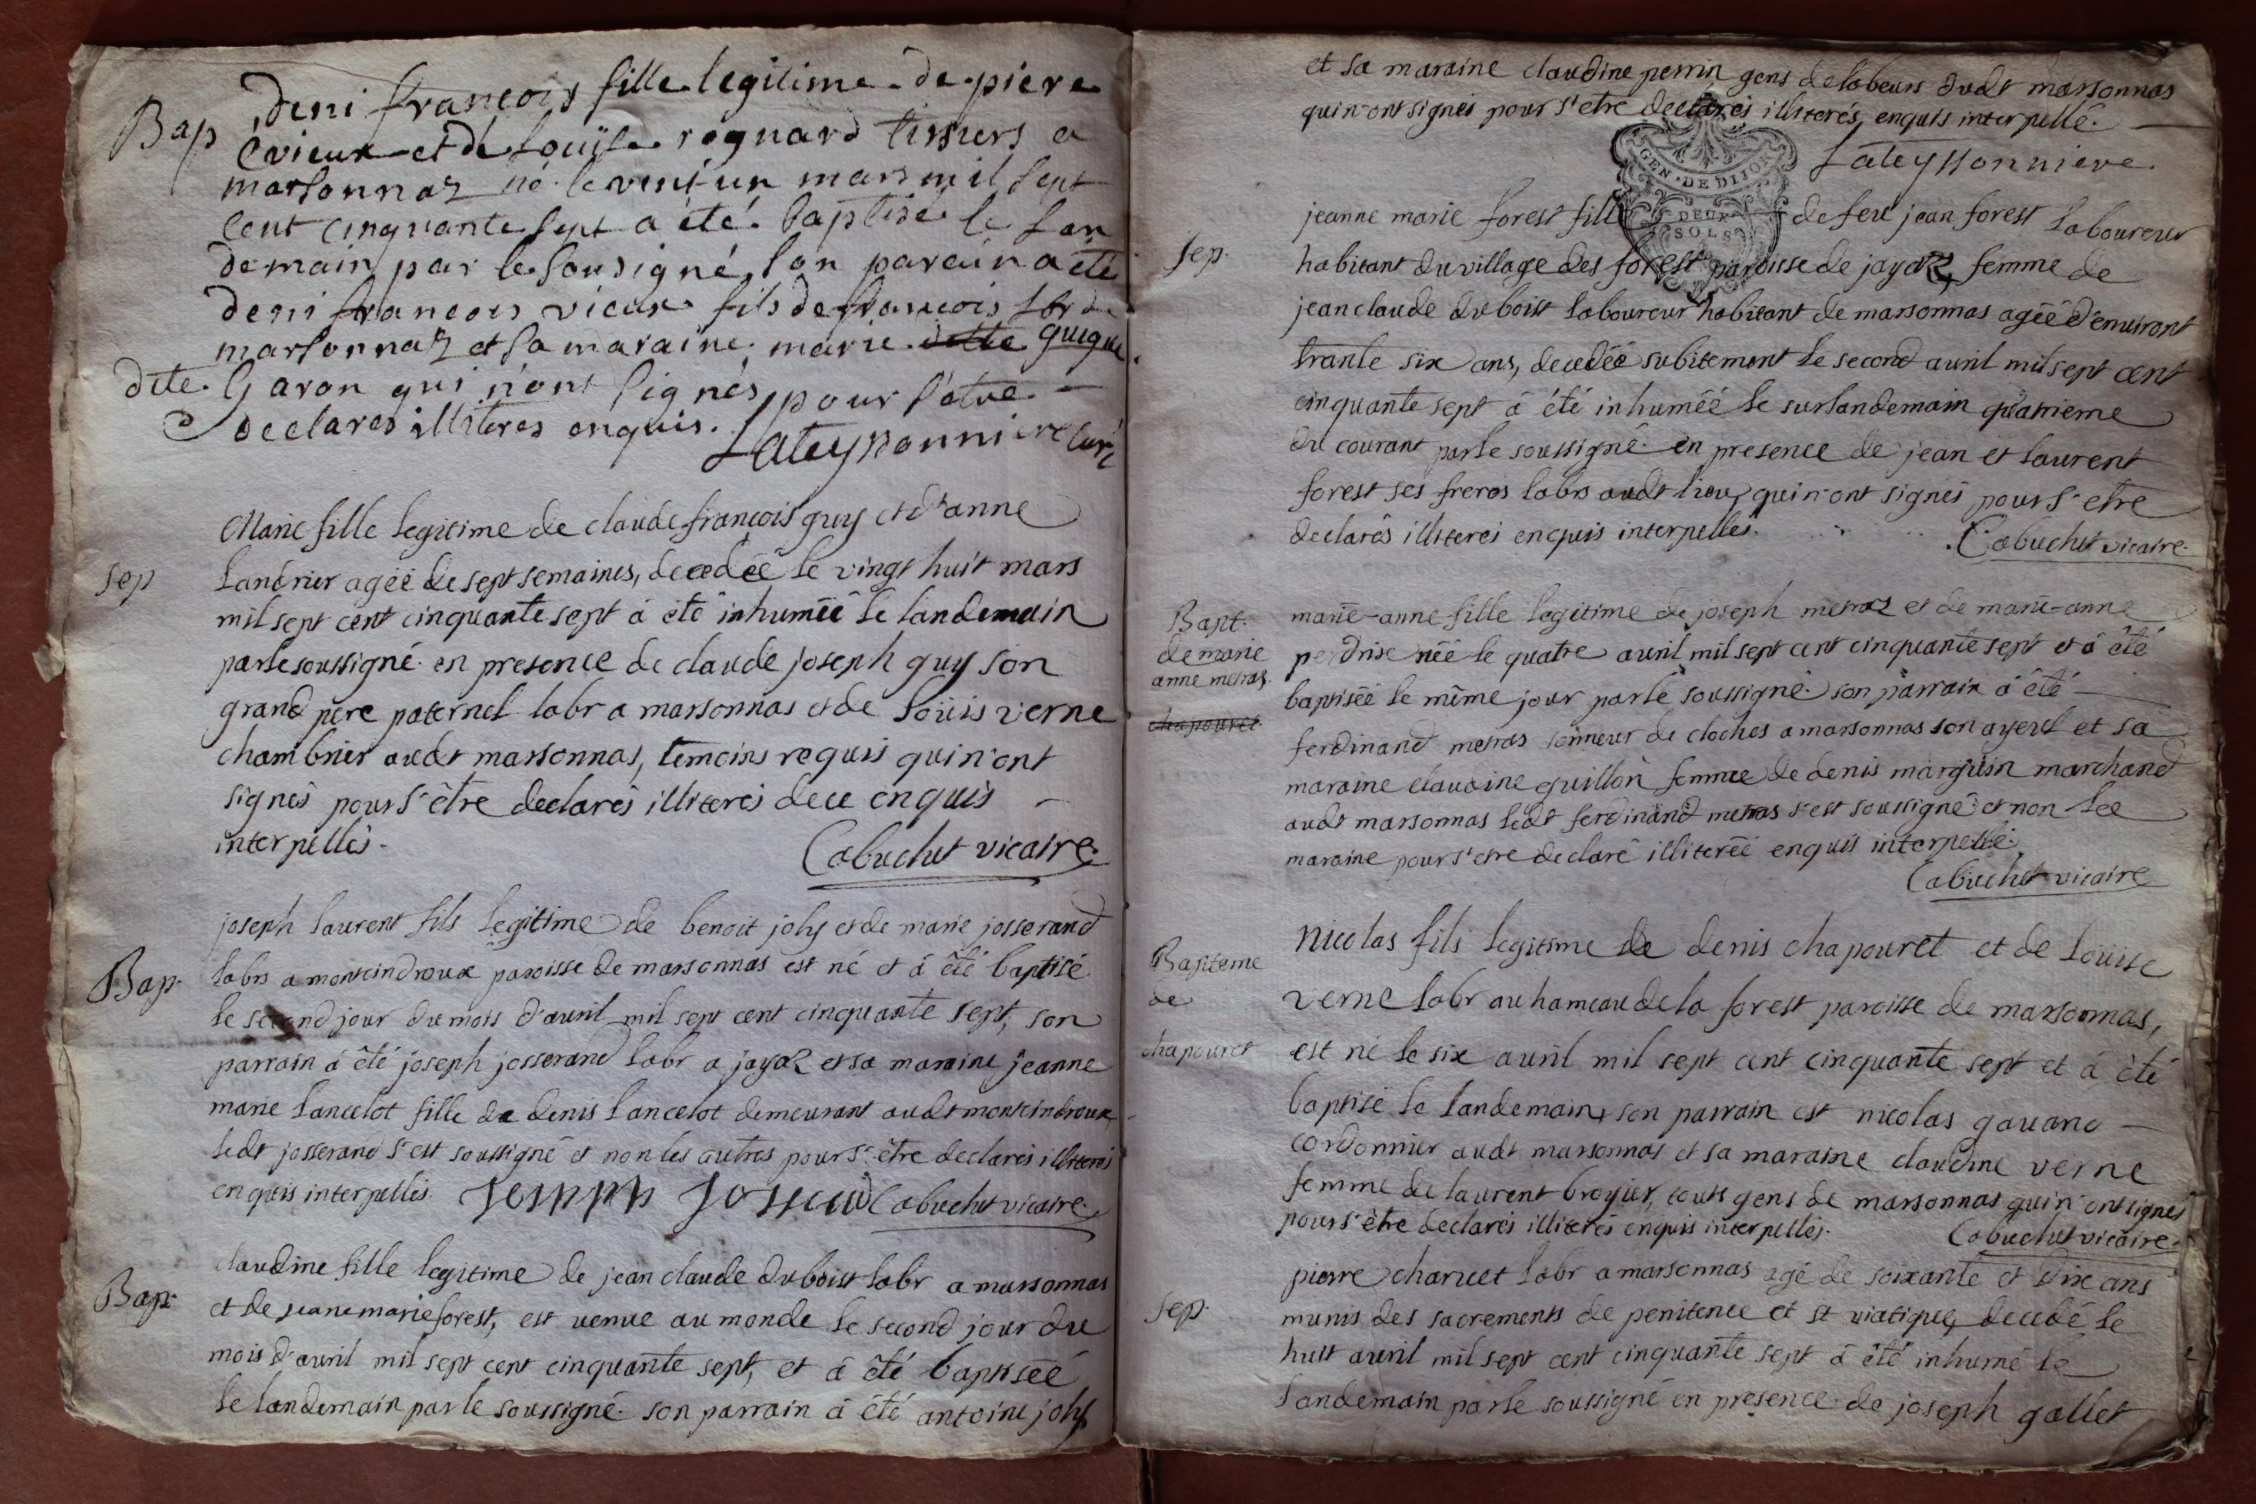 Bap
deni francois fille legitime de piere
vieux et de Louïse rognard tissiers a
marsonnaz né le vent un mars mil sept
cent cinquante sept a été baptisé le lan
demain par le sousigné, son parain a été
deni francois vieux fils de francois lbr de
marsonnaz et sa maraine marie dette guigue
dite Garon qui n'ont signés pour s'être
declares illiteres enquis. Lateyssonniere curé
sep
Marie fille legitime de claude françois guy et d'anne
Landrier ageé de sept semaines, decedeé le vingt huit mars
mil sept cent cinquante sept á eté inhumeé le landemain
par le soussigné en presence de claude joseph guy son
grand pere paternel labr a marsonnas et de Loüis verne
chambrier audt marsonnas, temoins requis qui n'ont
signés pour s'être declarés illiterés de ce enquis
interpellés.
Cabuchet vicaire
Bap.
joseph laurent fils legitime de benoit joly et de marie josserand
labrs a montcindroux paroisse de marsonnas est né et á été baptisé
le second jour du mois d'avril mil sept cent cinquante sept, son
parrain á été joseph josserand labr a jayaz et sa maraine jeanne
marie Lancelot fille de denis Lancelot demeurant audt montcindroux
ledt josserand s'est soussigné et non les autres pour s'être declarés illiterés
enquis interpellés. Joseph Joserand Cabuchet vicaire.
Bap:
claudine fille legitime de jean claude duboist labr a marsonnas
et de jeanne marie forest, est venue au monde le second jour du
mois d'avril mil sept cent cinquante sept, et á été baptiseé
le landemain par le soussigné. son parrain á été antoine joly
et sa maraine claudine perrin gens de labeurs dudt marsonnas
qui n'ont signés pour s'etre declarés illiterés, enquis interpellé.
Lateyssonniere
GEN. DE DIJON
DEUX
SOLS
sep.
jeanne marie forest fille de feu jean forest laboureur
habitant du village des forest paroisse de jayaz, femme de
jean claude duboist laboureur habitant de marsonnas ageé d'environt
trante six ans, decedeé subitement le second avril mil sept cent
cinquante sept á été inhumeé le surlandemain quatrieme
du courant par le soussigné en presence de jean et laurent
forest ses freres labrs audt lieu, qui n'ont signés pour s'etre
declarés illiterés enquis interpellés.
Cabuchet vicaire.
Bapt.
de marie
anne metras
chapouret
marie-anne fille legitime de joseph metraz et de marie-anne
perdrise neé le quatre avril mil sept cent cinquante sept et á été
baptiseé le même jour par le soussigné. son parrain á été
ferdinand metras sonneur de cloches a marsonnas son ayeul et sa
maraine claudine guillon femme de denis marguin marchand
audt marsonnas ledt ferdinand metras s'est soussigné et non la
maraine pour s'etre declaré illitereé enquis interpellé.
Cabuchet vicaire
Bapteme
de
chapouret
Nicolas fils legitime de denis chapouret et de Loüise
verne labr au hameau de la forest paroisse de marsonnas,
est né le six avril mil sept cent cinquante sept et á été
baptisé le landemain, son parrain est nicolas gavand
cordonnier audt marsonnas et sa maraine claudine verne
femme de laurent broyier, touts gens de marsonnas qui n'ont signés
pour s'être declarés illiterés enquis interpellés.
Cabuchet vicaire.
sep.
pierre charvet labr a marsonnas agé de soixante et dix ans
munis des sacrements de penitence et st viatique, decedé le
huit avril mil sept cent cinquante sept á été inhumé le
landemain par le soussigné en presence de joseph gallet